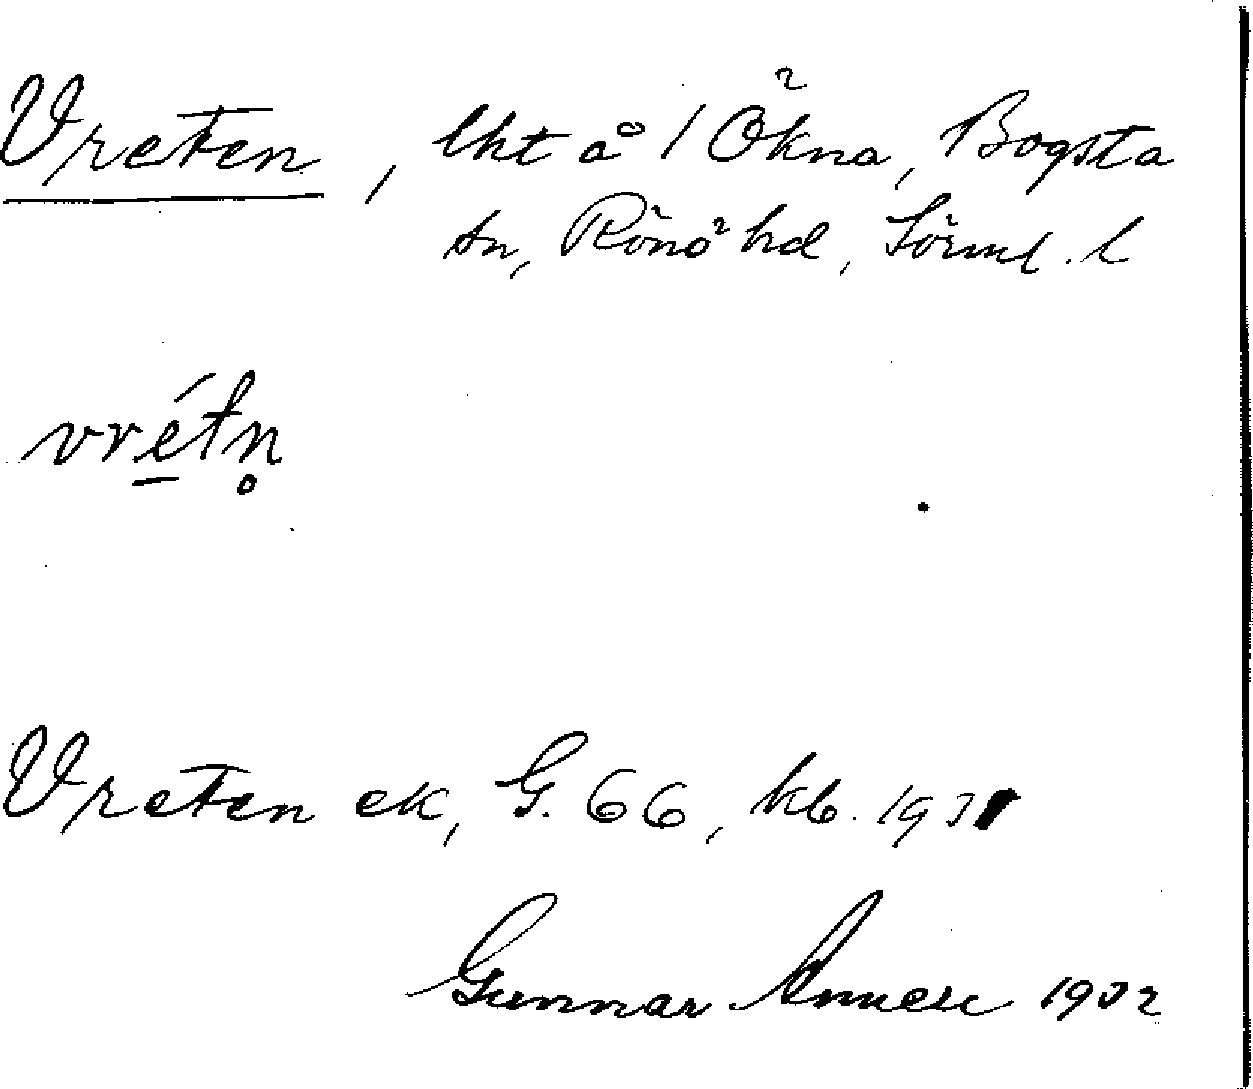 Vreten, lht å / Ökna, Bogsta
sn, Rönö hd, Sörml. l
vrétn̥
Vreten ek, G. 66, kb. 1931
Gunnar 1932